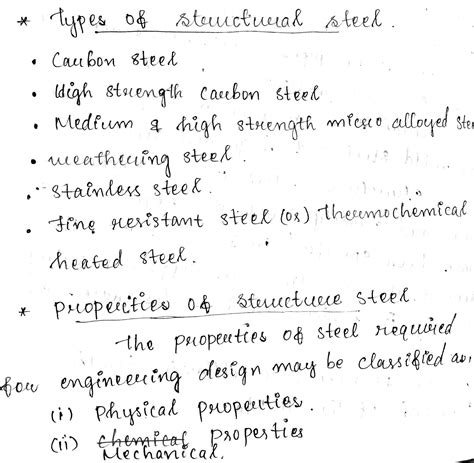 * Types of structural steel.
• Carbon steel
• High strength Carbon steel
• Medium & high strength micro alloyed ste
• weathering steel.
• stainless steel.
• Fire resistant steel (or) thermochemical
heated steel.
* Properties of structure steel.
The properties of steel required
for engineering design may be classified as:
(i) Physical properties.
(ii) chemical properties
Mechanical.